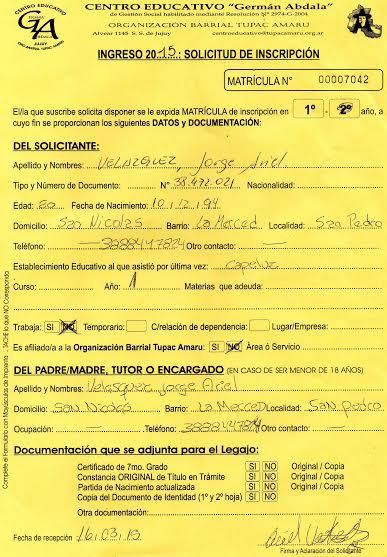 CENTRO EDUCATIVO "Germán Abdala"
de Gestión Social habilitado mediante Resolución Nº 2974-G-2004
ORGANIZACIÓN BARRIAL TUPAC AMARU
Alvear 1145 S. S. de Jujuy centroeducativo@tupacamaru.org.ar
CENTRO EDUCATIVO
JUJUY
INGRESO 2015: SOLICITUD DE INSCRIPCIÓN
MATRÍCULA N° 00007042
El/la que suscribe solicita disponer se le expida MATRÍCULA de inscripción en 1º - 2º año, a
cuyo fin se proporcionan los siguientes DATOS y DOCUMENTACIÓN:
DEL SOLICITANTE:
Apellido y Nombres: VELAZQUEZ Jorge Ariel
Tipo y Número de Documento: N° 38.472.021 Nacionalidad:
Edad: 20 Fecha de Nacimiento: 10.12.94
Domicilio: San Nicolas Barrio: La Merced Localidad: San Pedro
Teléfono: 3888447824 Otro contacto: —
Establecimiento Educativo al que asistió por última vez:
Curso: Año: 1 Materias que adeuda:
Trabaja: SI NO Temporario: C/relación de dependencia: Lugar/Empresa:
Es afiliado/a a la Organización Barrial Tupac Amaru: SI NO Área ó Servicio
DEL PADRE/MADRE, TUTOR O ENCARGADO (EN CASO DE SER MENOR DE 18 AÑOS)
Apellido y Nombres: Velasquez Jorge Ariel
Domicilio: San Nicolas Barrio: La Merced Localidad: San pedro
Ocupación: — Teléfono: 3888447824 Otro contacto: —
Documentación que se adjunta para el Legajo:
Certificado de 7mo. Grado SI NO Original / Copia
Constancia ORIGINAL de Título en Trámite SI NO Original / Copia
Partida de Nacimiento actualizada SI NO Original / Copia
Copia del Documento de Identidad (1º y 2º hoja) SI NO Original / Copia
Otra documentación:
Fecha de recepción 16.03.15
Firma y Aclaración del Solicitante
Complete el Formulario con Mayúsculas de Imprenta - TACHE lo que NO Corresponda